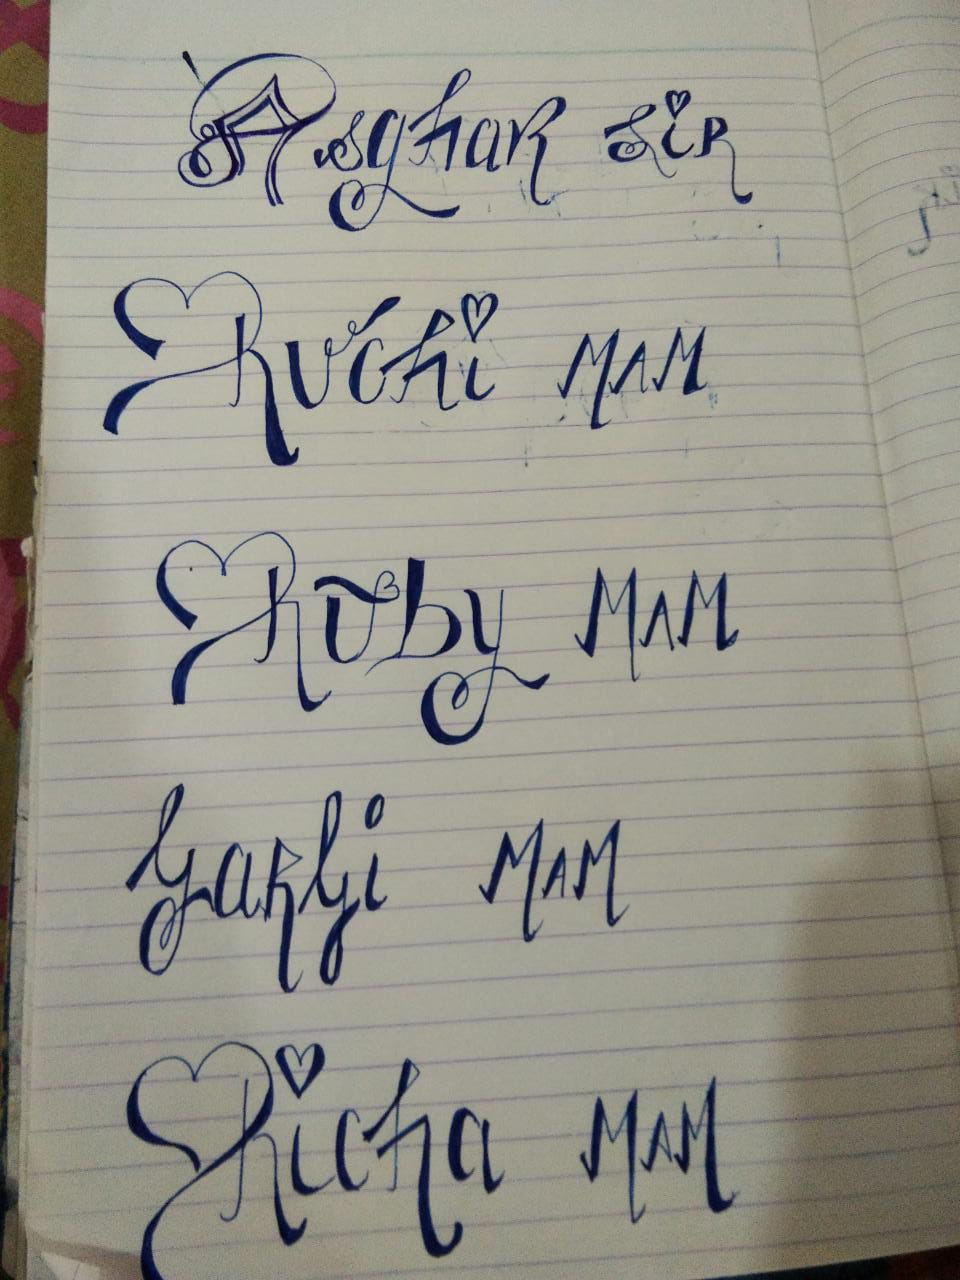 Asghar Sir
Ruchi MAM
Ruby MAM
Gargi MAM
Richa MAM